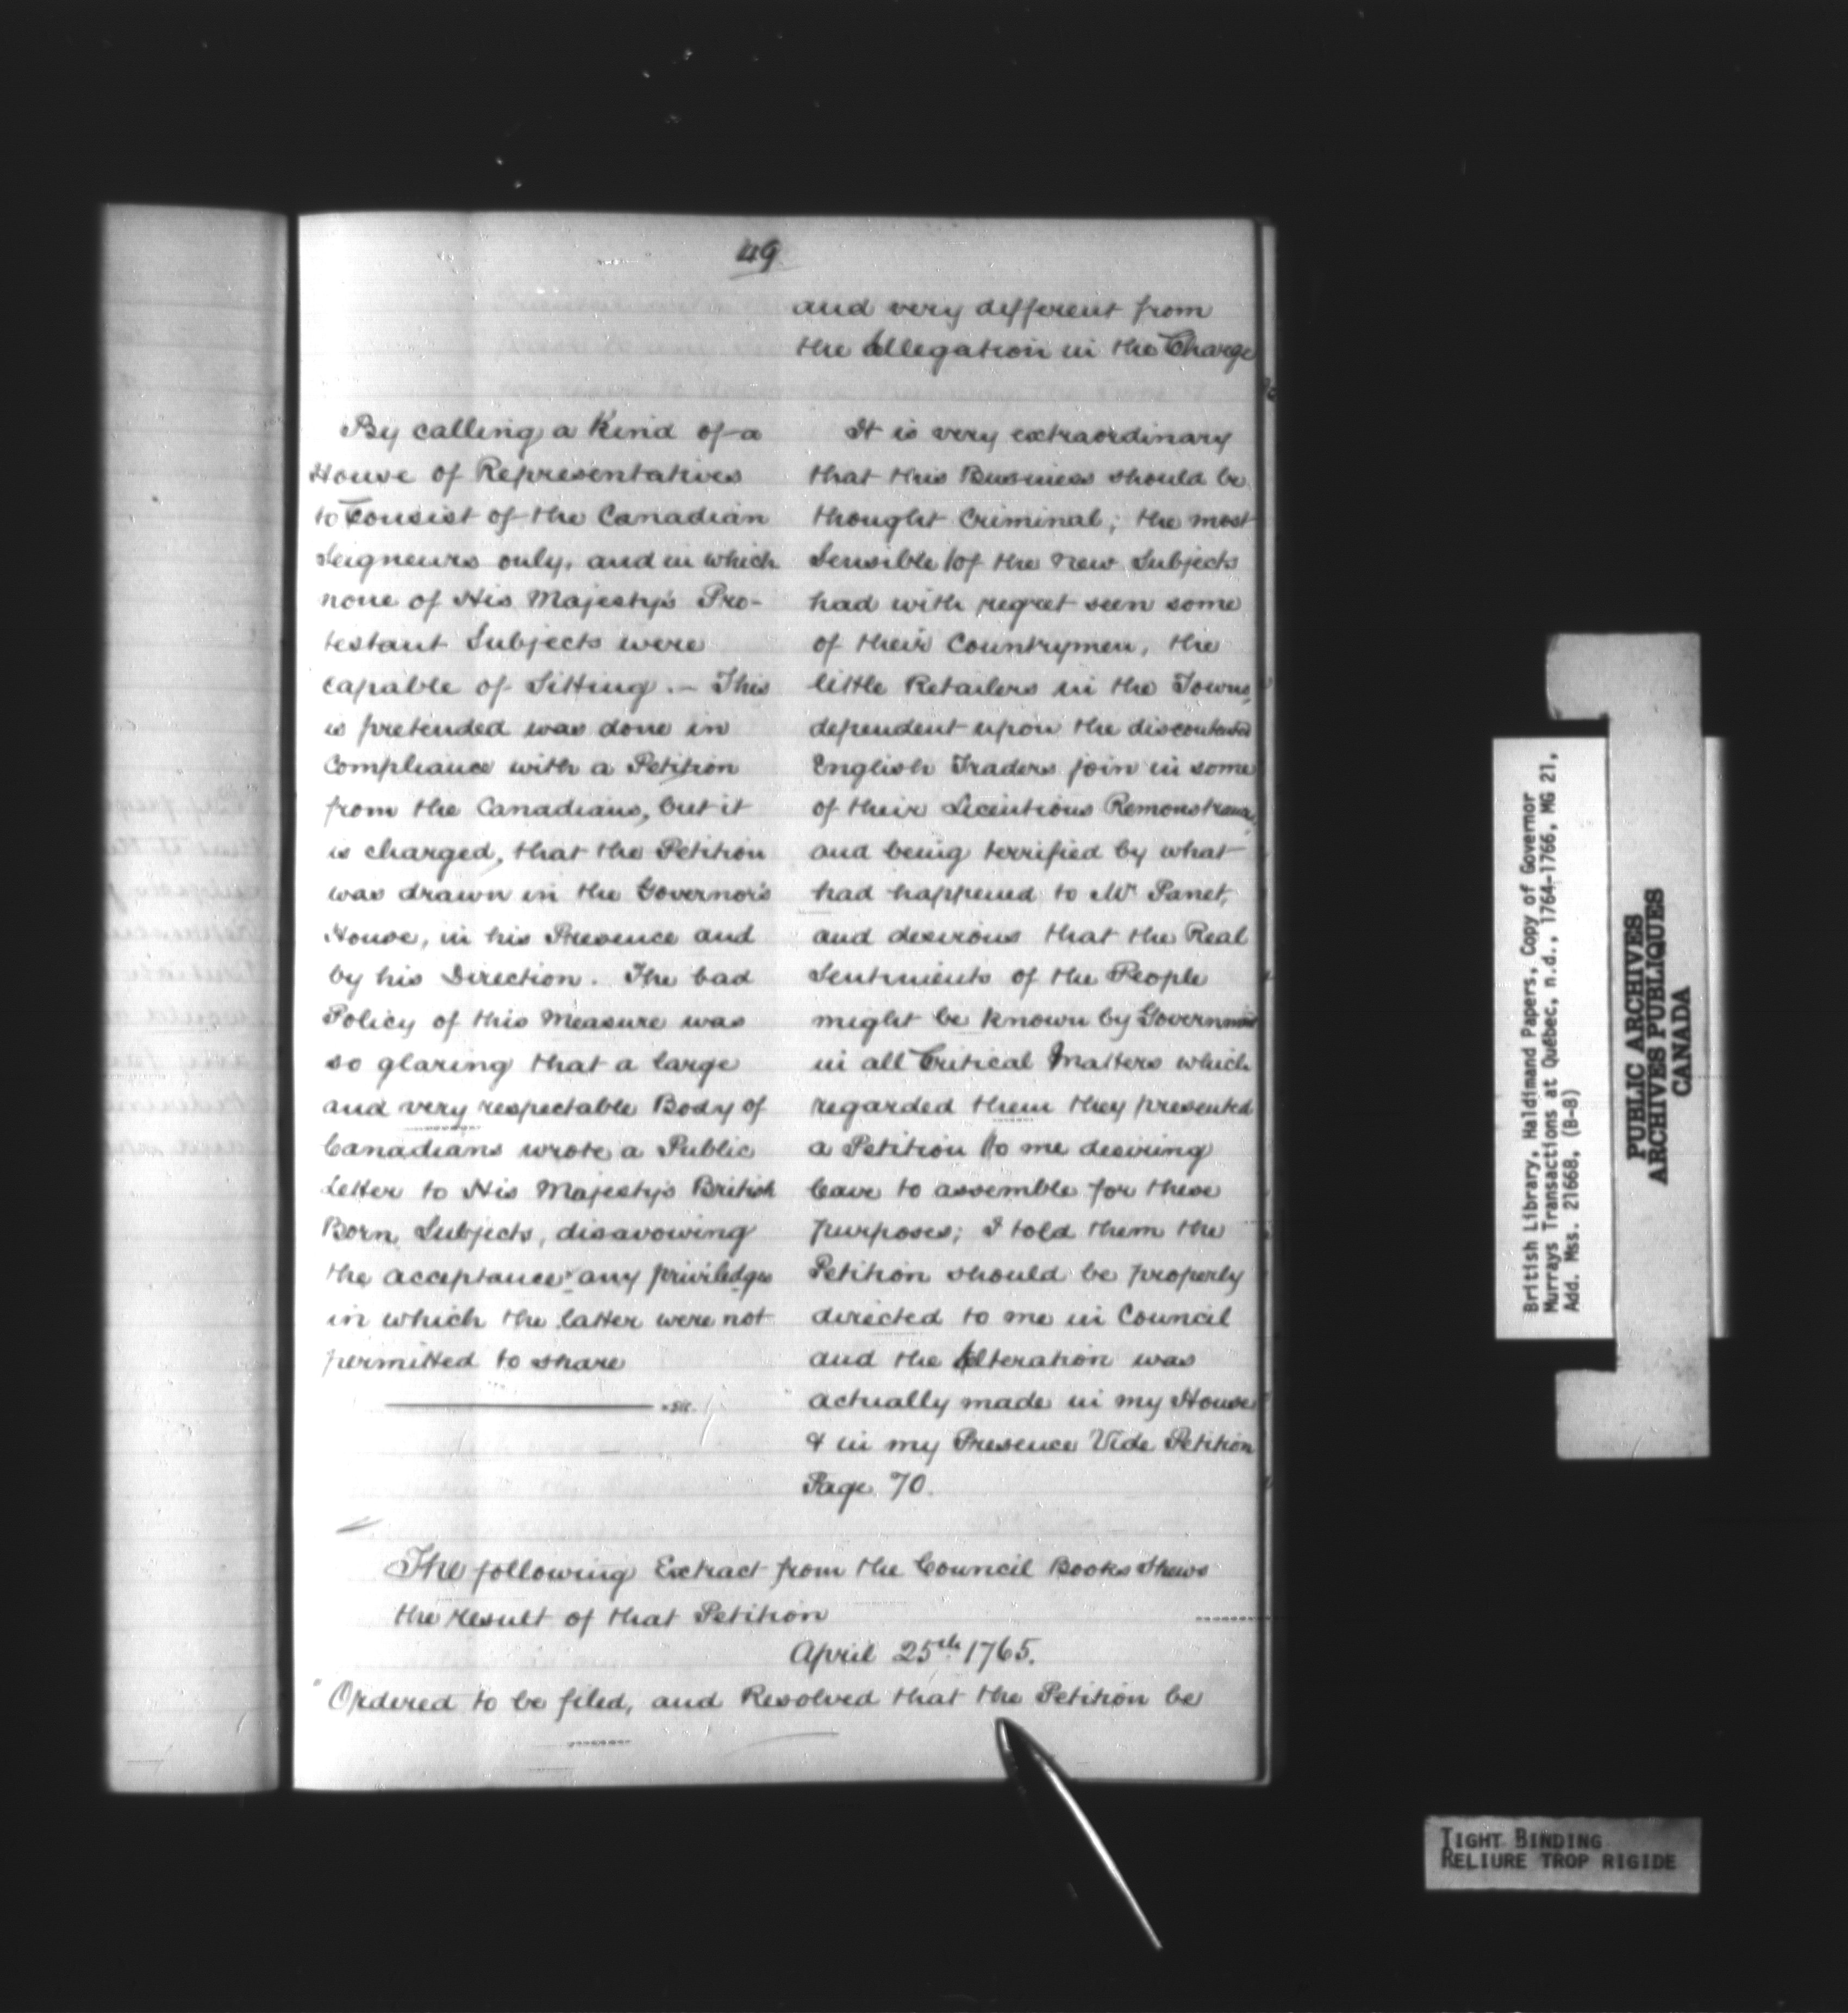 49
and very different from
the Allegation in the Charge
By calling a Kind of a
House of Representatives
to Consist of the Canadian
Seigneurs only, and in which
none of His Majesty's Pro-
testant Subjects were
capable of Sitting. — This
is pretended was done in
Compliance with a Petition
from the Canadians, but it
is charged, that the Petition
was drawn in the Governor's
House, in his Presence and
by his Direction. The bad
Policy of this Measure was
so glaring that a large
and very respectable Body of
Canadians wrote a Public
Letter to His Majesty's British
Born Subjects, disavowing
the acceptance any priviledges
in which the latter were not
permitted to share
It is very extraordinary
that this Business should be
thought Criminal; the most
Sensible of the New Subjects
had with regret seen some
of their Countrymen, the
little Retailers in the Towns,
dependent upon the discontented
English Traders join in some
of their Licentious
and being terrified by what
had happened to Mr Panet,
and desirous that the Real
Sentiments of the People
might be known by Government
in all Critical Matters which
regarded them they presented
a Petition to me desiring
leave to assemble for these
purposes; I told them the
Petition should be properly
directed to me in Council
and the Alteration was
actually made in my House
& in my Presence Vide Petition
Page 70.
The following Extract from the Council Books Shews
the result of that Petition
April 25th 1765.
"Ordered to be filed, and Resolved that the Petition be
British Library, Haldimand Papers, Copy of Governor
Murrays Transactions at Québec, n.d., 1764-1766, MG 21,
Add. Mss. 21668, (B-8)
PUBLIC ARCHIVES
ARCHIVES PUBLIQUES
CANADA
TIGHT BINDING
RELIURE TROP RIGIDE